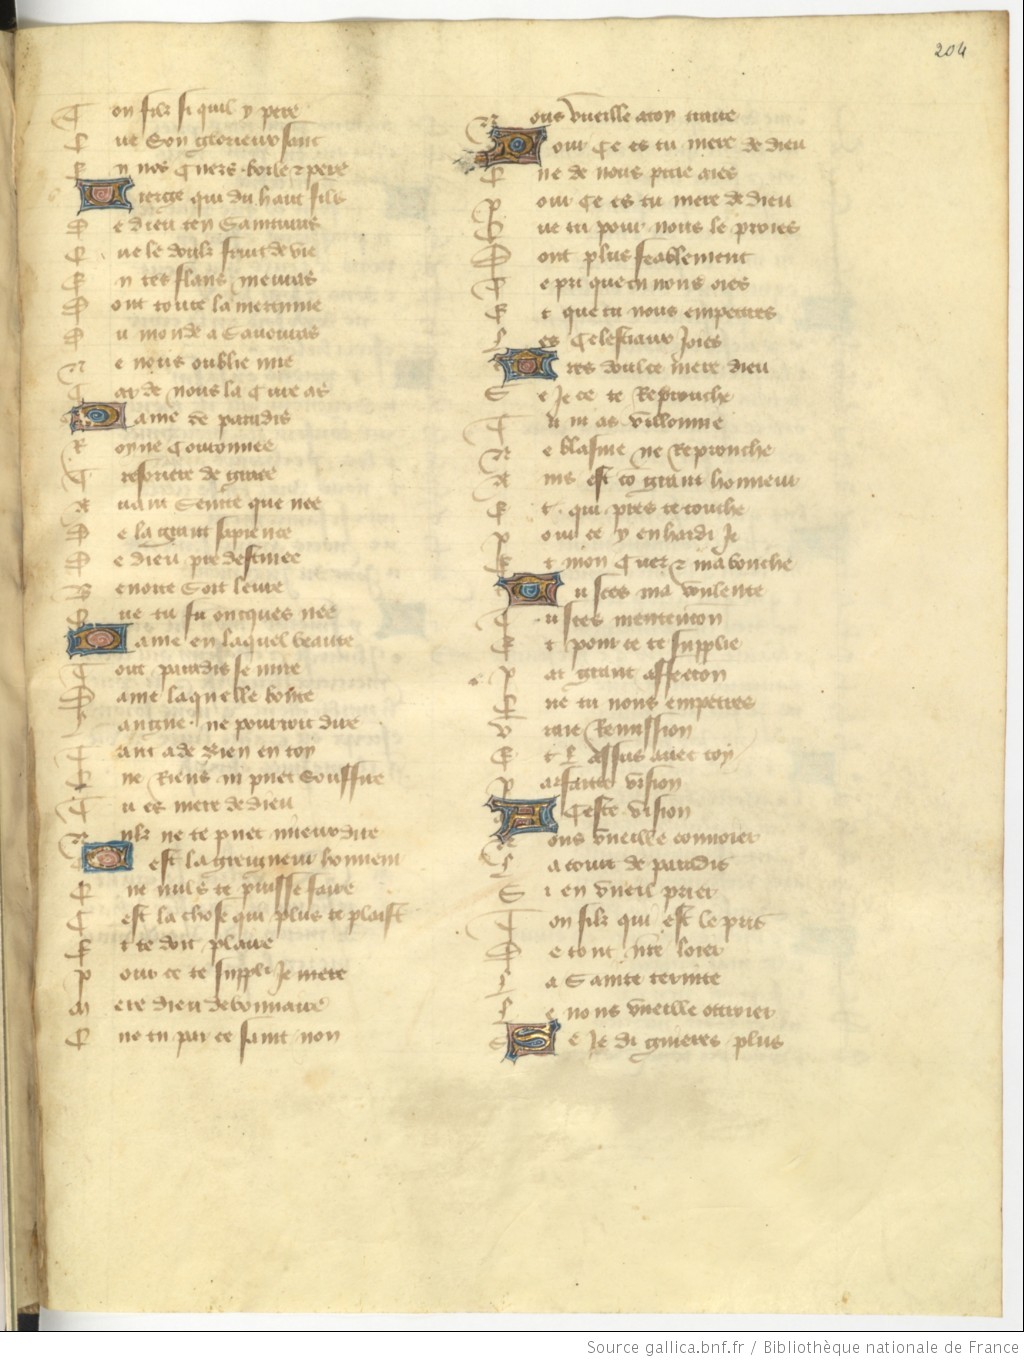 204
Ton filz si quil y pere
Que Son glorieux saint
En nos Cuers boile & pere
Vierge qui du haut filz
De dieu ten Saintuas
Que le doulz fruit de vie
En tes flans
Dont toute la
Du monde a Sauouras
Ne nous oublie mie
Car de nous la Cure as
Dame de paradis
Royne Couronnee
Tresoriere de grace
Auant Sentie que nee
De la grant sapience
De dieu predestinee
Benoite Soit leure
Que tu fu oncques nee
Dame en laquel beaute
Tout paradis se mire
Dame laquelle bonte
Langue ne pourroit dire
Tant a de bien en toy
Que Riens ni puet Souffire
Tu es mere de dieu
Nulz ne te puet mieux dire
Cest la greigneur honneur
Que nuls te puisse faire
Cest la chose qui plus te plaist
Et te doit plaire
Pour ce te suppli Je mere
Mere dieu debonnaire
Que tu par ce saint non
Nous vueille a toy traire
Pour Ce es tu mere de dieu
Que de nous pitie aies
Pour Ce es tu mere de dieu
Que tu pour nous le proies
Dont plus feablement
Te pri que tu nous oies
Et que tu nous empetres
Les Celestiaux Joies
Tres doulce mere dieu
Se Je ce te Reprouche
Tu ni as villonnie
Ne blasme ne Reprouche
Ains est to grant honneur
Et qui pres te touche
Pour ce y enhardi Je
Et mon Cuer & ma bouche
Tu sces ma voulente
Tu sces mentencon
Et pour ce te supplie
Par grant affeccon
Que tu nous empetres
Vraie Remission
Et assus auec toy
Parfaitte vision
A Ceste vision
Nous vueille conuoier
La court de paradis
Si en vueil prier
Ton filz qui est le pris
De tout nre loier
La Sainte ternite
Le nous vueille ottroier
Se Je di gueres plus